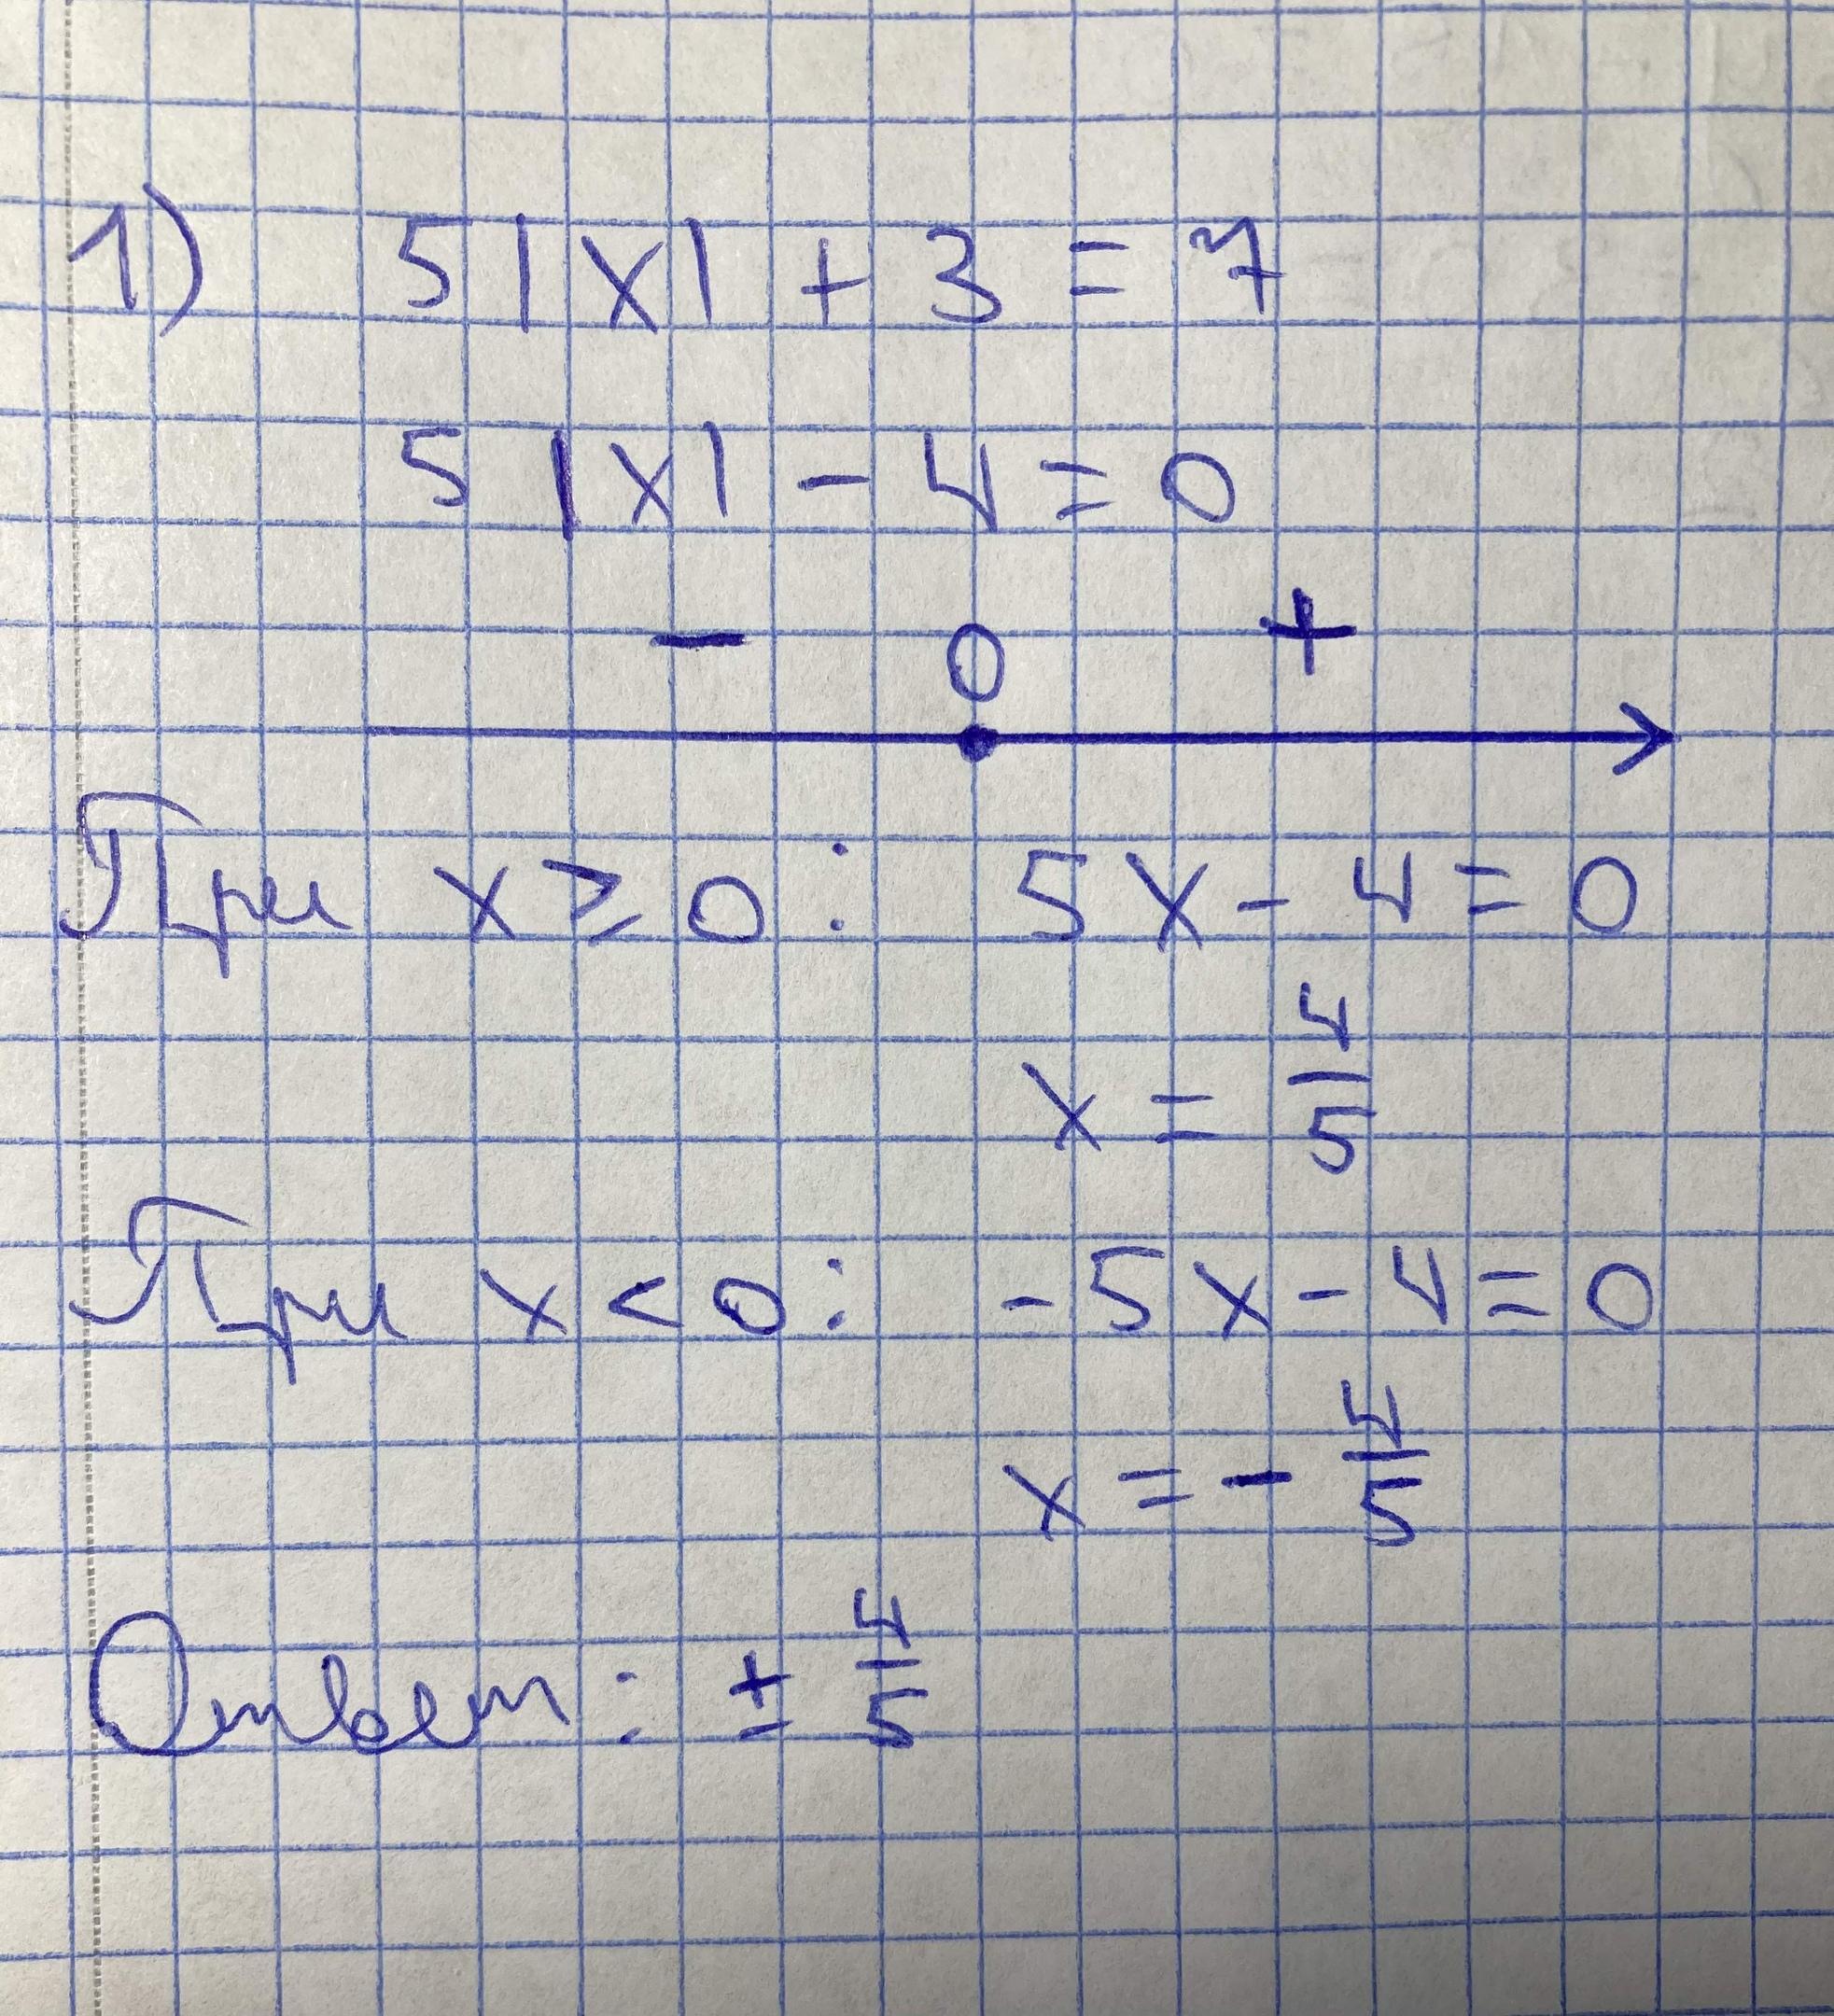 1) 5|x| + 3 = 7
5|x| - 4 = 0
- 0 +
При x ≥ 0: 5x - 4 = 0
x = 4/5
При x < 0: -5x - 4 = 0
x = - 4/5
Ответ: ± 4/5